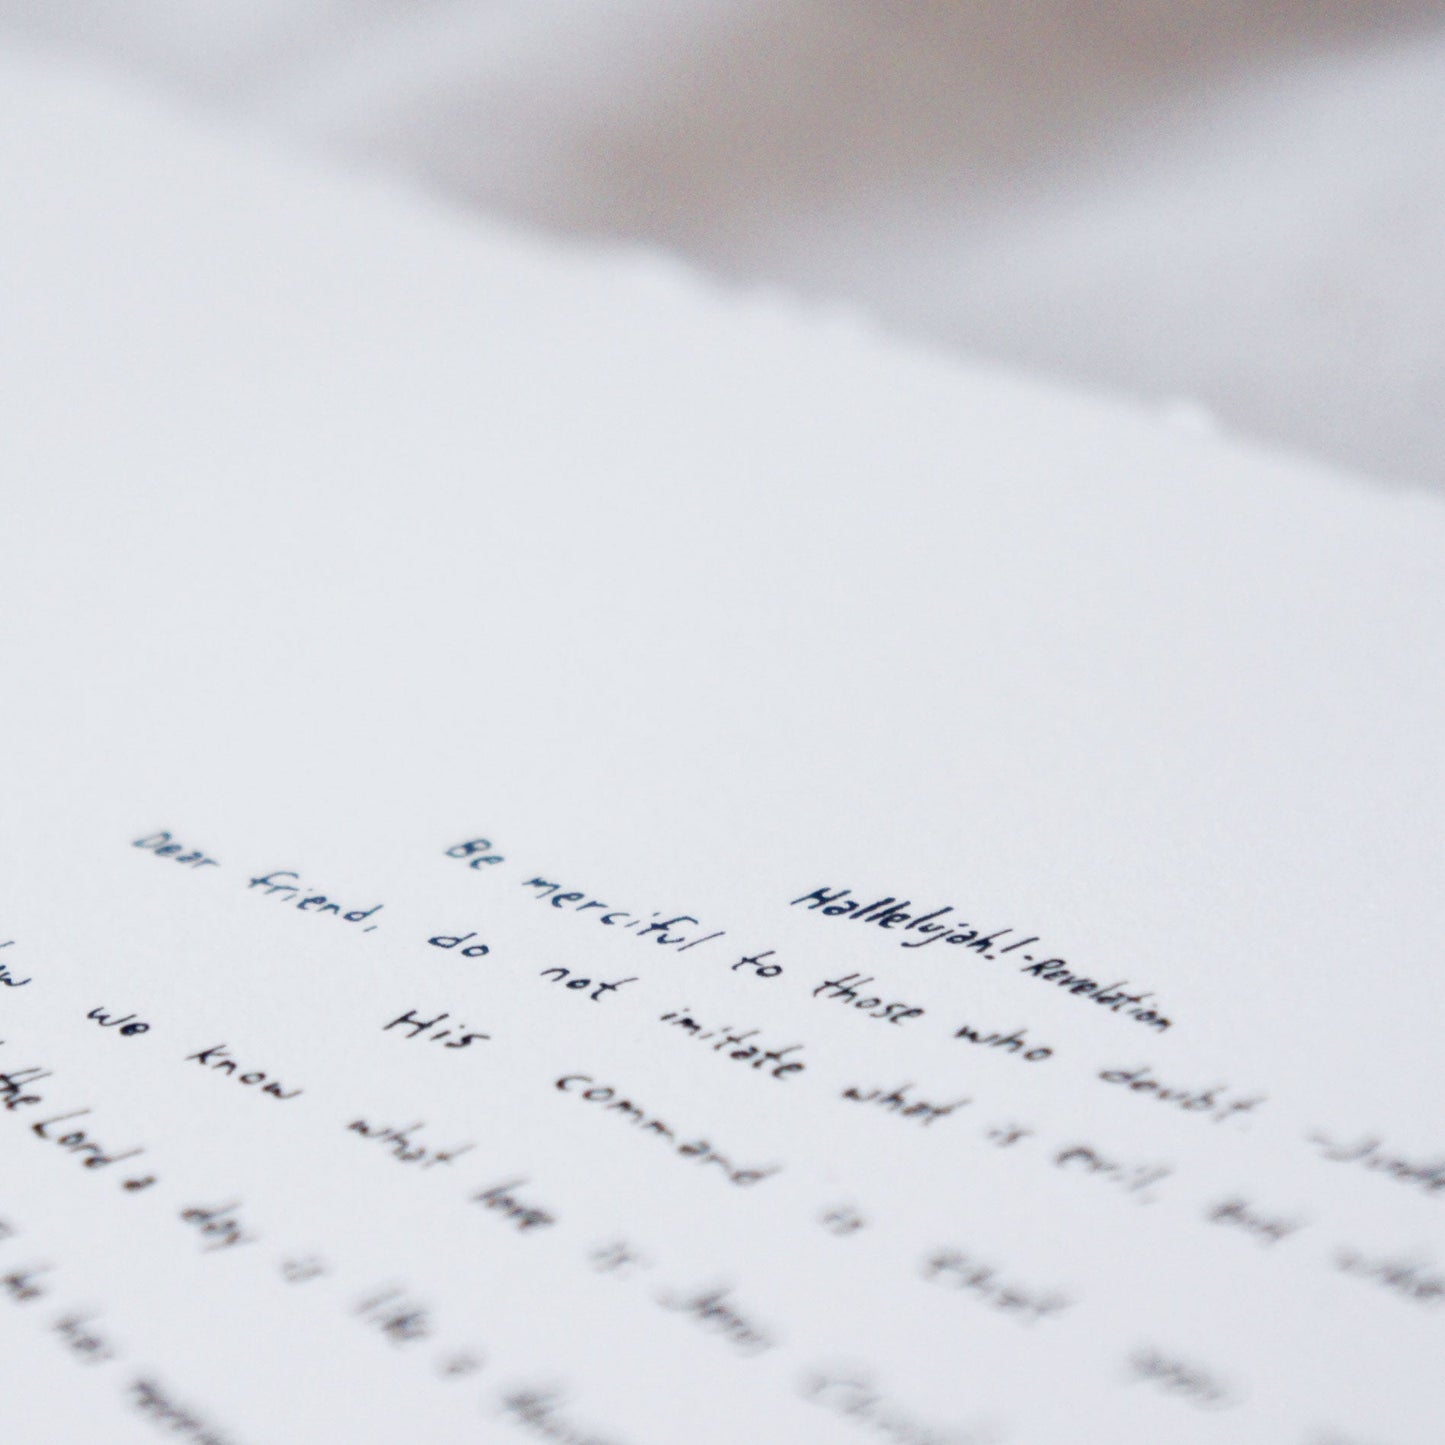 Hallelujah! -Revelation
Be merciful to those who doubt. -Jude
Dear friend, do not imitate what is evil, but
His command is that you
we know what love is: Jesus Christ
the Lord a day is like a
he has